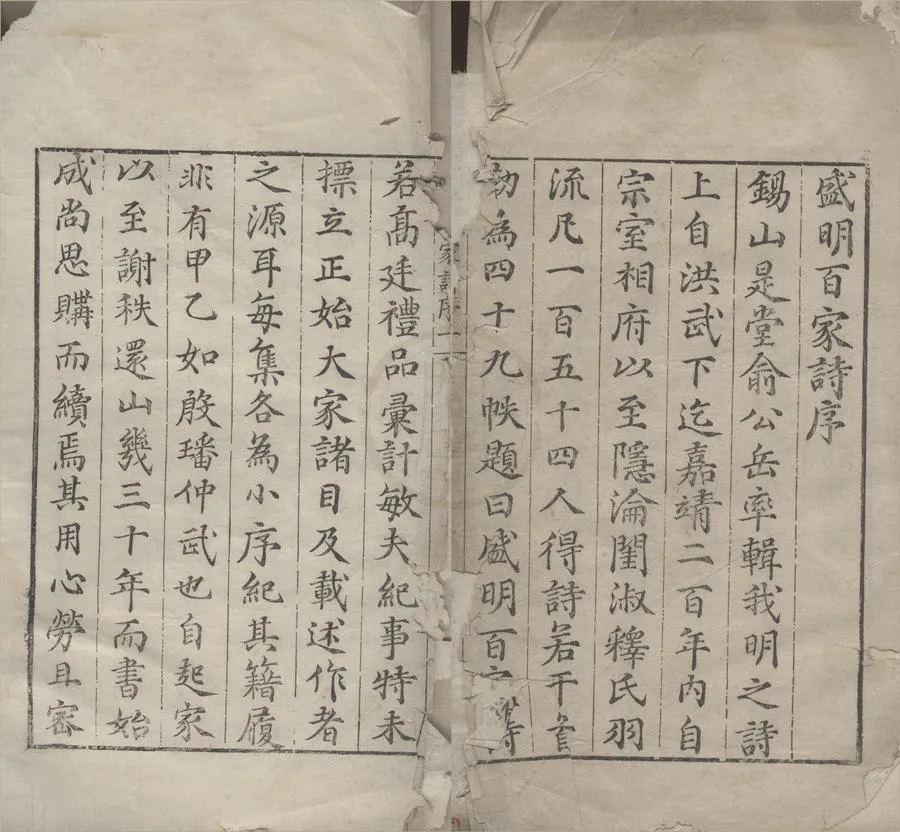 盛明百家詩序
錫山是堂俞公岳率輯我明之詩
上自洪武下迄嘉靖二百年内自
宗室相府以至隱淪閨淑釋氏羽
流凡一百五十四人得詩若干首
勒為四十九帙題曰盛明百家詩
家詩序一
若高廷禮品彙計敏夫紀事特未
摽立正始大家諸目及載述作者
之源耳每集各為小序紀其籍履
非有甲乙如殷璠仲武也自起家
以至謝秩還山幾三十年而書始
成尚思購而續焉其用心勞且密